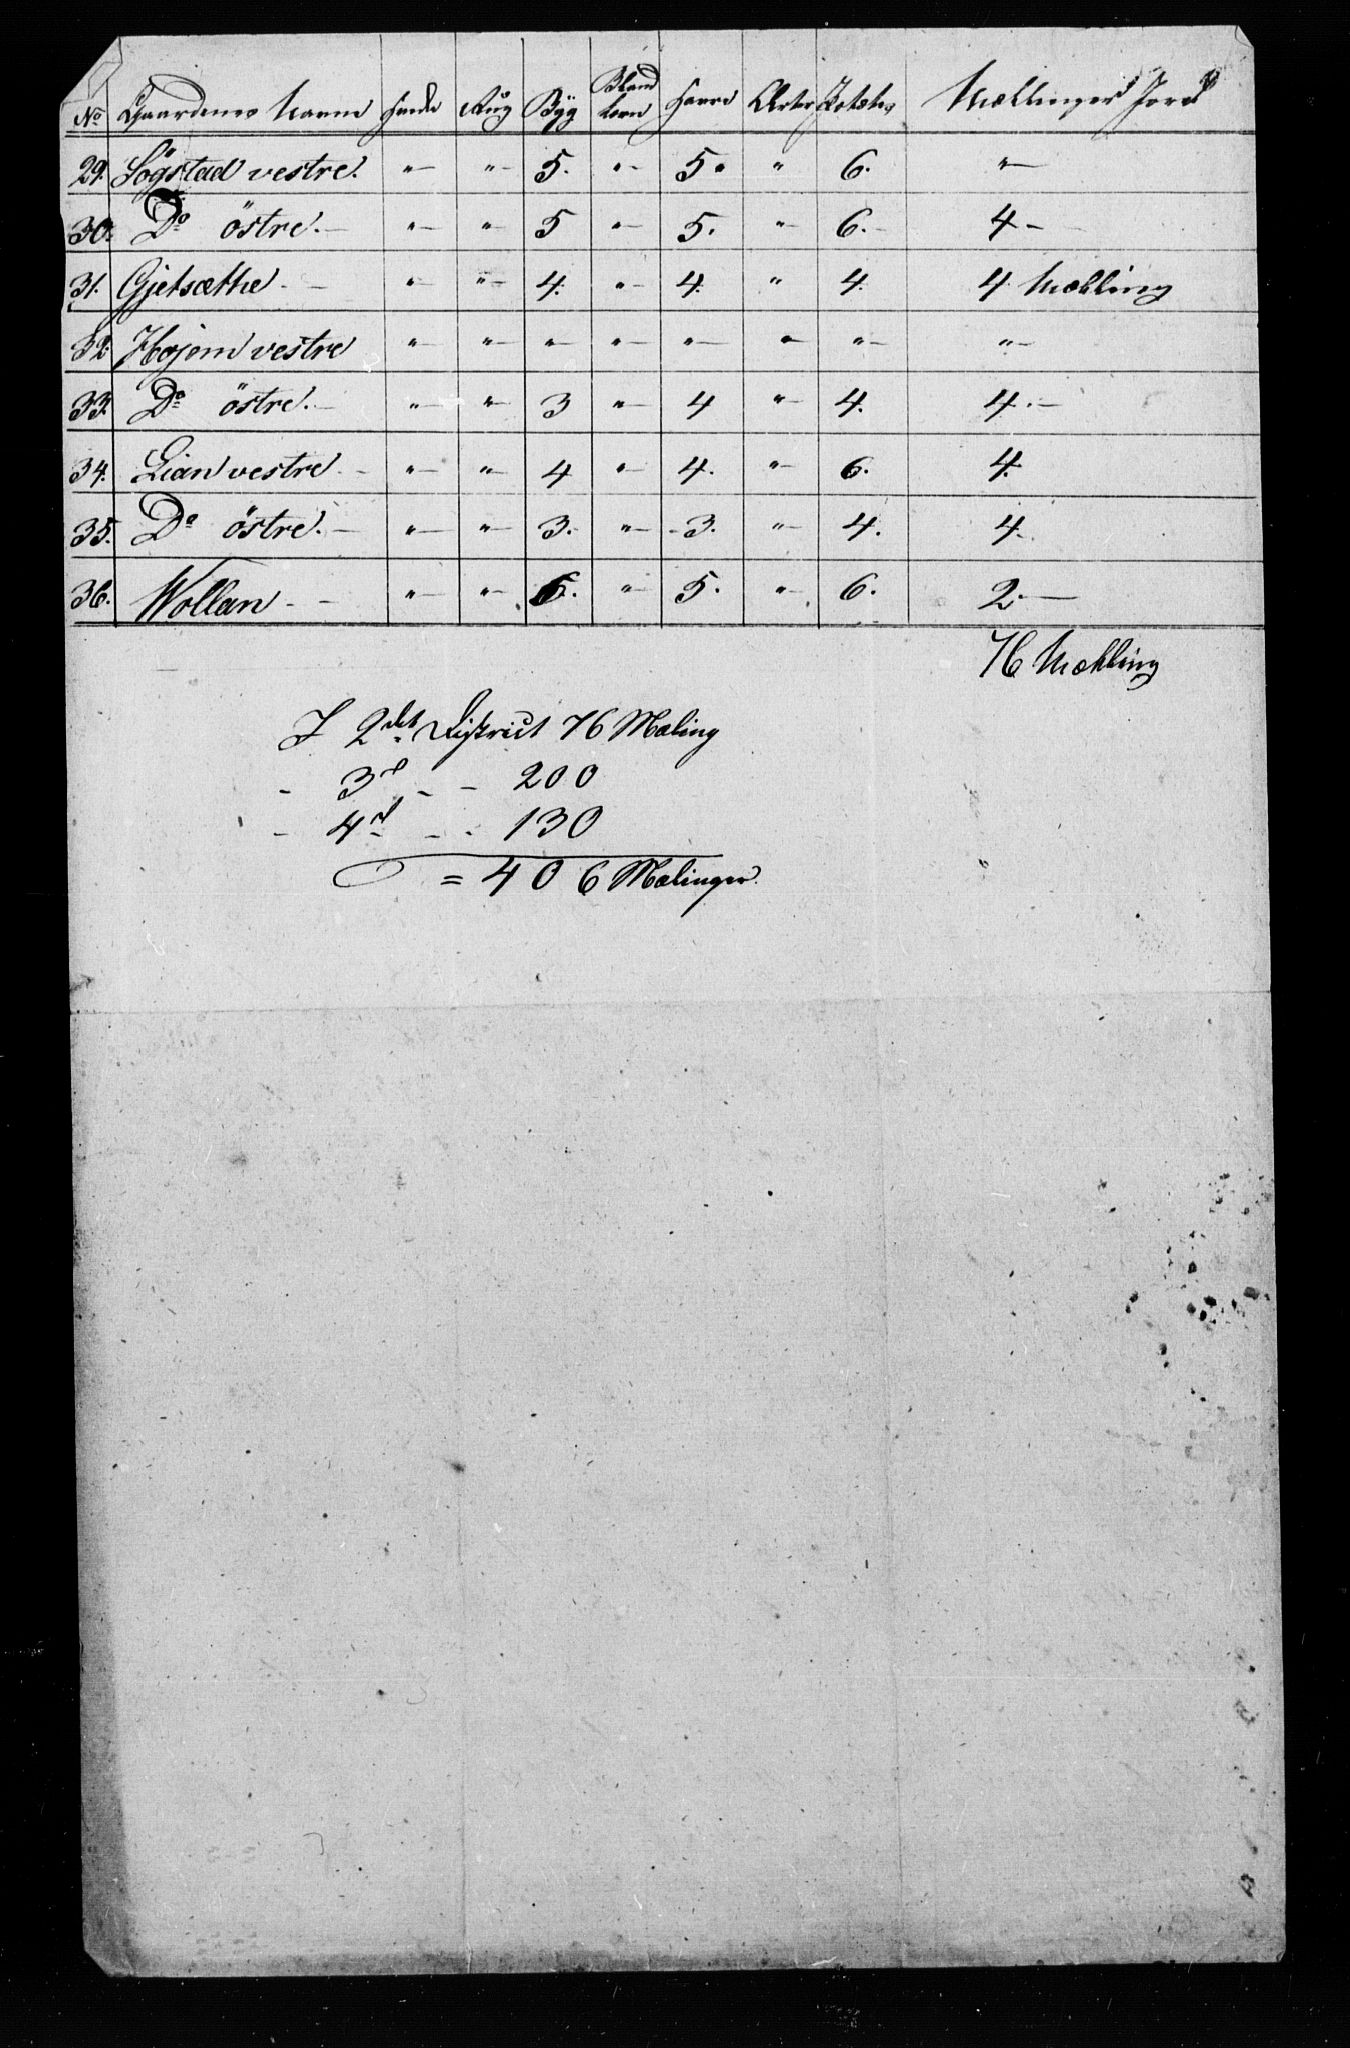 No Gaardenes Navne Hvede Rug Byg Bland korn Havre Ærter Potetes Mællinger Jord
29. Sögstad vestre. "— "— 5. "— 5. " 6. "—
30. Do östre. — "— "— 5 "— 5. "— 6. — 4 —
31. Gjetsæthe — "— "— 4. "— 4. " 4. 4 Mælling
32. Hojem vestre "— "— "— "— "— "— "— "—
33. Do östre. — "— "— 3 "— 4 "— 4. 4. —
34. Lian vestre — "— "— 4 "— 4. "— 6. 4.
35. Do östre. — "— "— 3. "— 3. "— 4. 4.
36. Wollan — "— "— 5. "— 5. "— 6. 2. —
76 Mælling
I 2det District 76 Mæling
- 3d - - 200
- 4d - - 130
= 406 Mælinger.